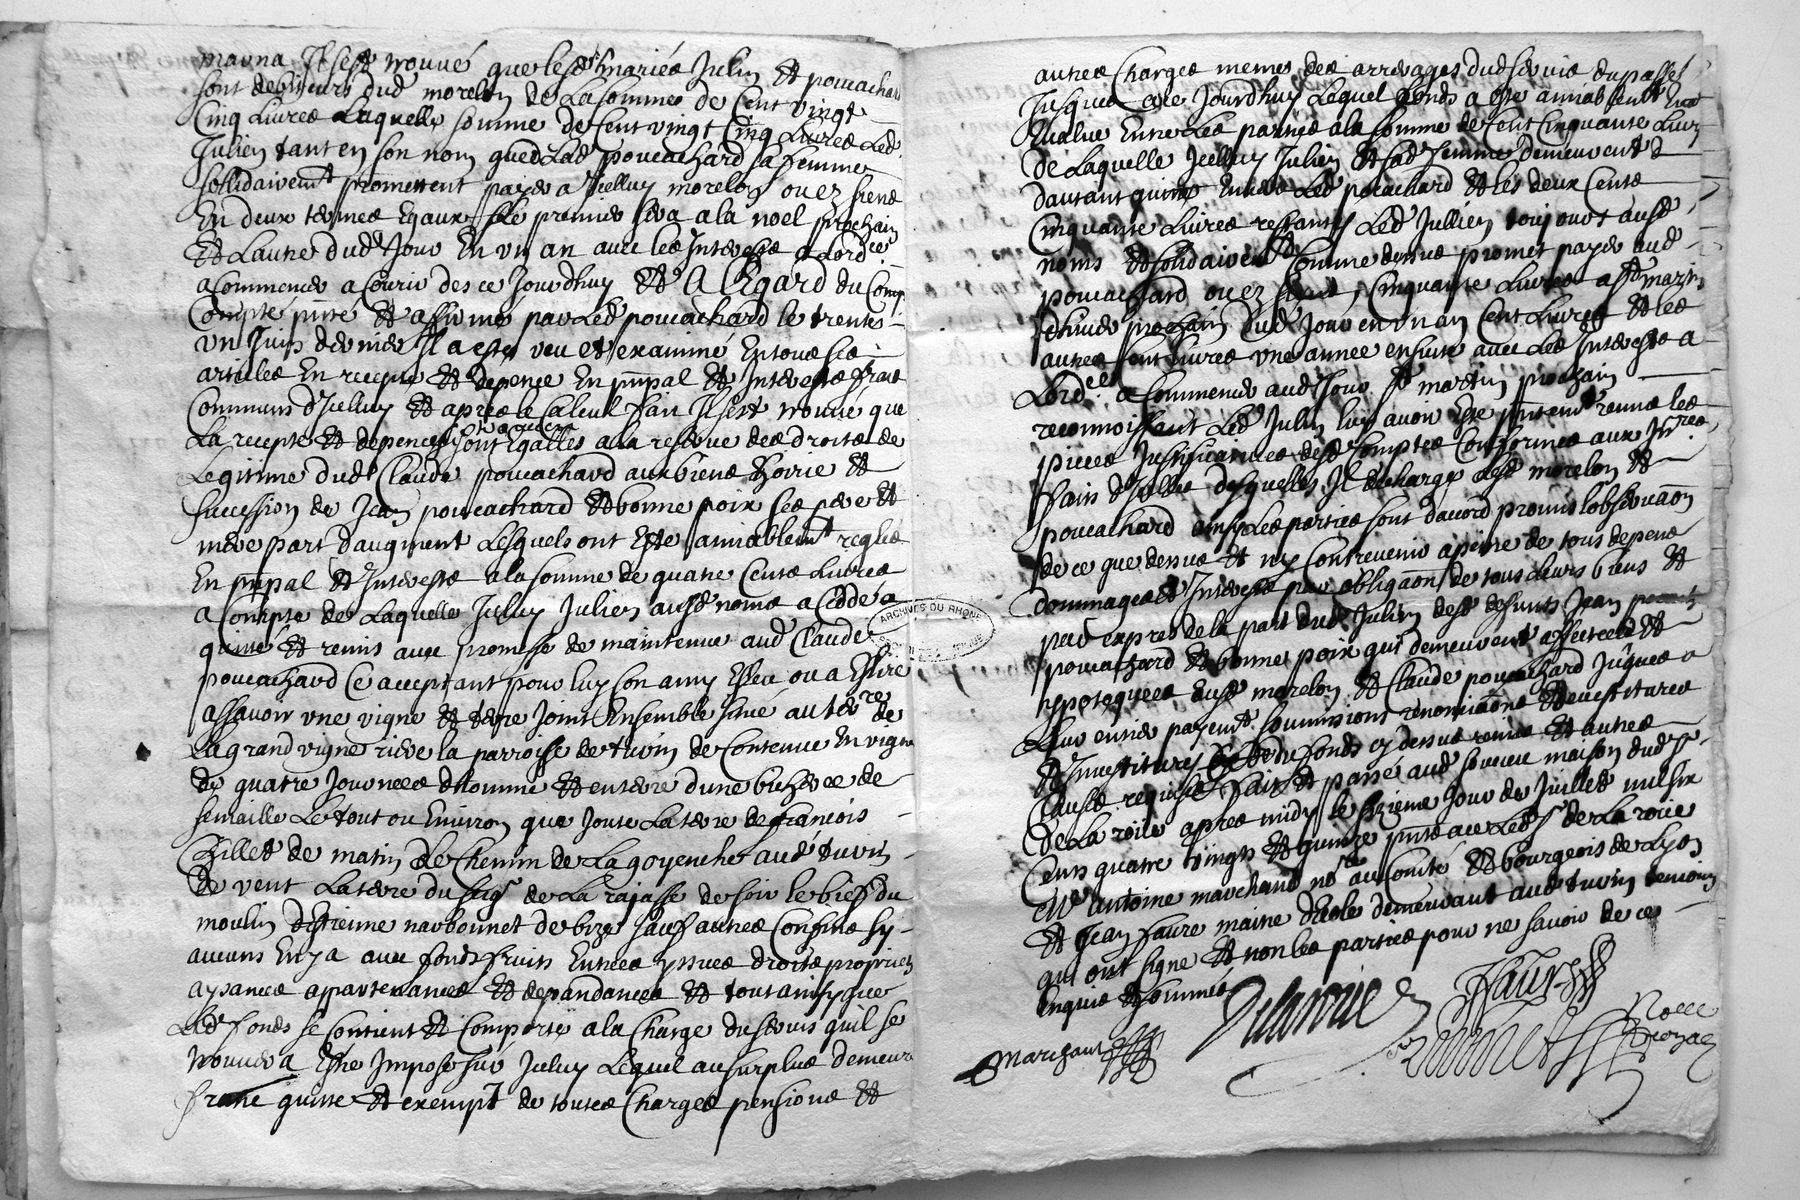 mauna Il sest trouvé que lesd mariés Julien et poucachard
sont debiteurs dud morelon de la somme de Cent vingt
Cinq Livres Laquelle somme de Cent vingt Cinq Livres Led
Julien tant en son nom que Lad poucachard sa femme
sollidairemt promettent payer a Jcelluy morelon ou ez siens
En deux termes Egaux le premier sera a la noel prochain
et Lautre dud Jour En un an avec les Interests a Lordce
a Commencer a Courir des ce Jourdhuy Et A LEgard du
Compte pnté et affirmé par Led poucachard le trente
un Juin dernier Il a esté veu et examiné En tous ses
articles En recepte et depence En pnpal et Interests frait
Communs dIcelluy et apres le Calcul fait Il sest trouvé que
La recepte et depence sont Egalles a la reserve des droits de
Legitime dud Claude poucachard aux biens hoirie et
succession de Jean poucachard et bonne poix ses pere et
mere part daugment Lesquels ont Esté amiablemt reglés
En pnpal et Interests a la somme de quatre Cents Livres
a Compte de Laquelle Jcelluy Julien ausd noms a Cédé
quitté et remis avec promesse de maintenue aud Claude
poucachard Ce acceptant pour luy son amy Esleu ou a Eslire
assavoir une vigne et terre Joint Ensemble situé au terre de
La grand vigne riere la parroisse de tuvin de Contenue En vigne
de quatre Journees dhomme et en terre dune bicheree de
semaille Le tout ou Environ que Joute La terre de francois
Gillet de matin Le Chemin de La goyenche aud tuvin
de vent La terre du sieur de La rajasse de soir le bief du
moulin dEstienne narbonnet de bize sauf autres Confins sy
aucuns En y a avec fonds fruits Entrees yssues droits proprietez
aysances appartenances et dependances et tout ainsy que
Led fonds se Contient et Comporte a la Charge du servis quil se
trouvera Estre Imposé sur Jcelluy Lequel au surplus demeure
franc quitte et exempt de toutes Charges pensions et
autres Charges memes des arrerages dud servis du passé
Jusques a ce Jourdhuy Lequel fonds a esté amiablemt
Evalué Entre Les parties a la somme de Cent Cinquante Livres
de Laquelle Jcelluy Julien et sad femme demeurent
dautant quittes Envers Led poucachard et les deux Cents
Cinquante Livres restants Led Jullien toujours ausd
noms et solidairemt Comme dessus promet payer aud
poucachard ou ez siens, Cinquante Livres a st martin
dhiver prochain dud Jour en un an Cent Livres et les
autres Cent Livres une année ensuite avec Les Interests a
Lordce a Commencer aud Jour st martin prochain
reconnoissant Led Julien luy avoir Esté pntemt remis les
pieces Justificatives desd Comptes Conformes aux
fain dIcelles desquelles Il decharge Lesd morelon et
poucachard ainsy Les parties sont daccord promis lobservaon
de ce que dessus et ny Contrevenir a peine de tous depens
dommages et Interests par obligaon de tous Leurs biens et
par expres de la part dud Julien desd defunts Jean
poucachard et bonne poix qui demeurent affectees et
hypotequees Ausd morelon et Claude poucachard Jusques a
Leur entier payemt soumissions renonciaons et devestitures
et Investitures dud fonds cy dessus remis et autres
Clauses requises fait et passé aud maison dud sr
de La roue apres midy le seizieme Jour de Juillet mil six
Cents quatre vingts et quinze pnts avec Led sr de La roue
Me antoine marchand nre au Comté et bourgeois de Lyon
et Jean faure maitre dEcole demeurant aud tuvin temoins
qui ont signé et non les parties pour ne savoir de ce
Enquis et sommés
Delaroue
Faure
Marchant